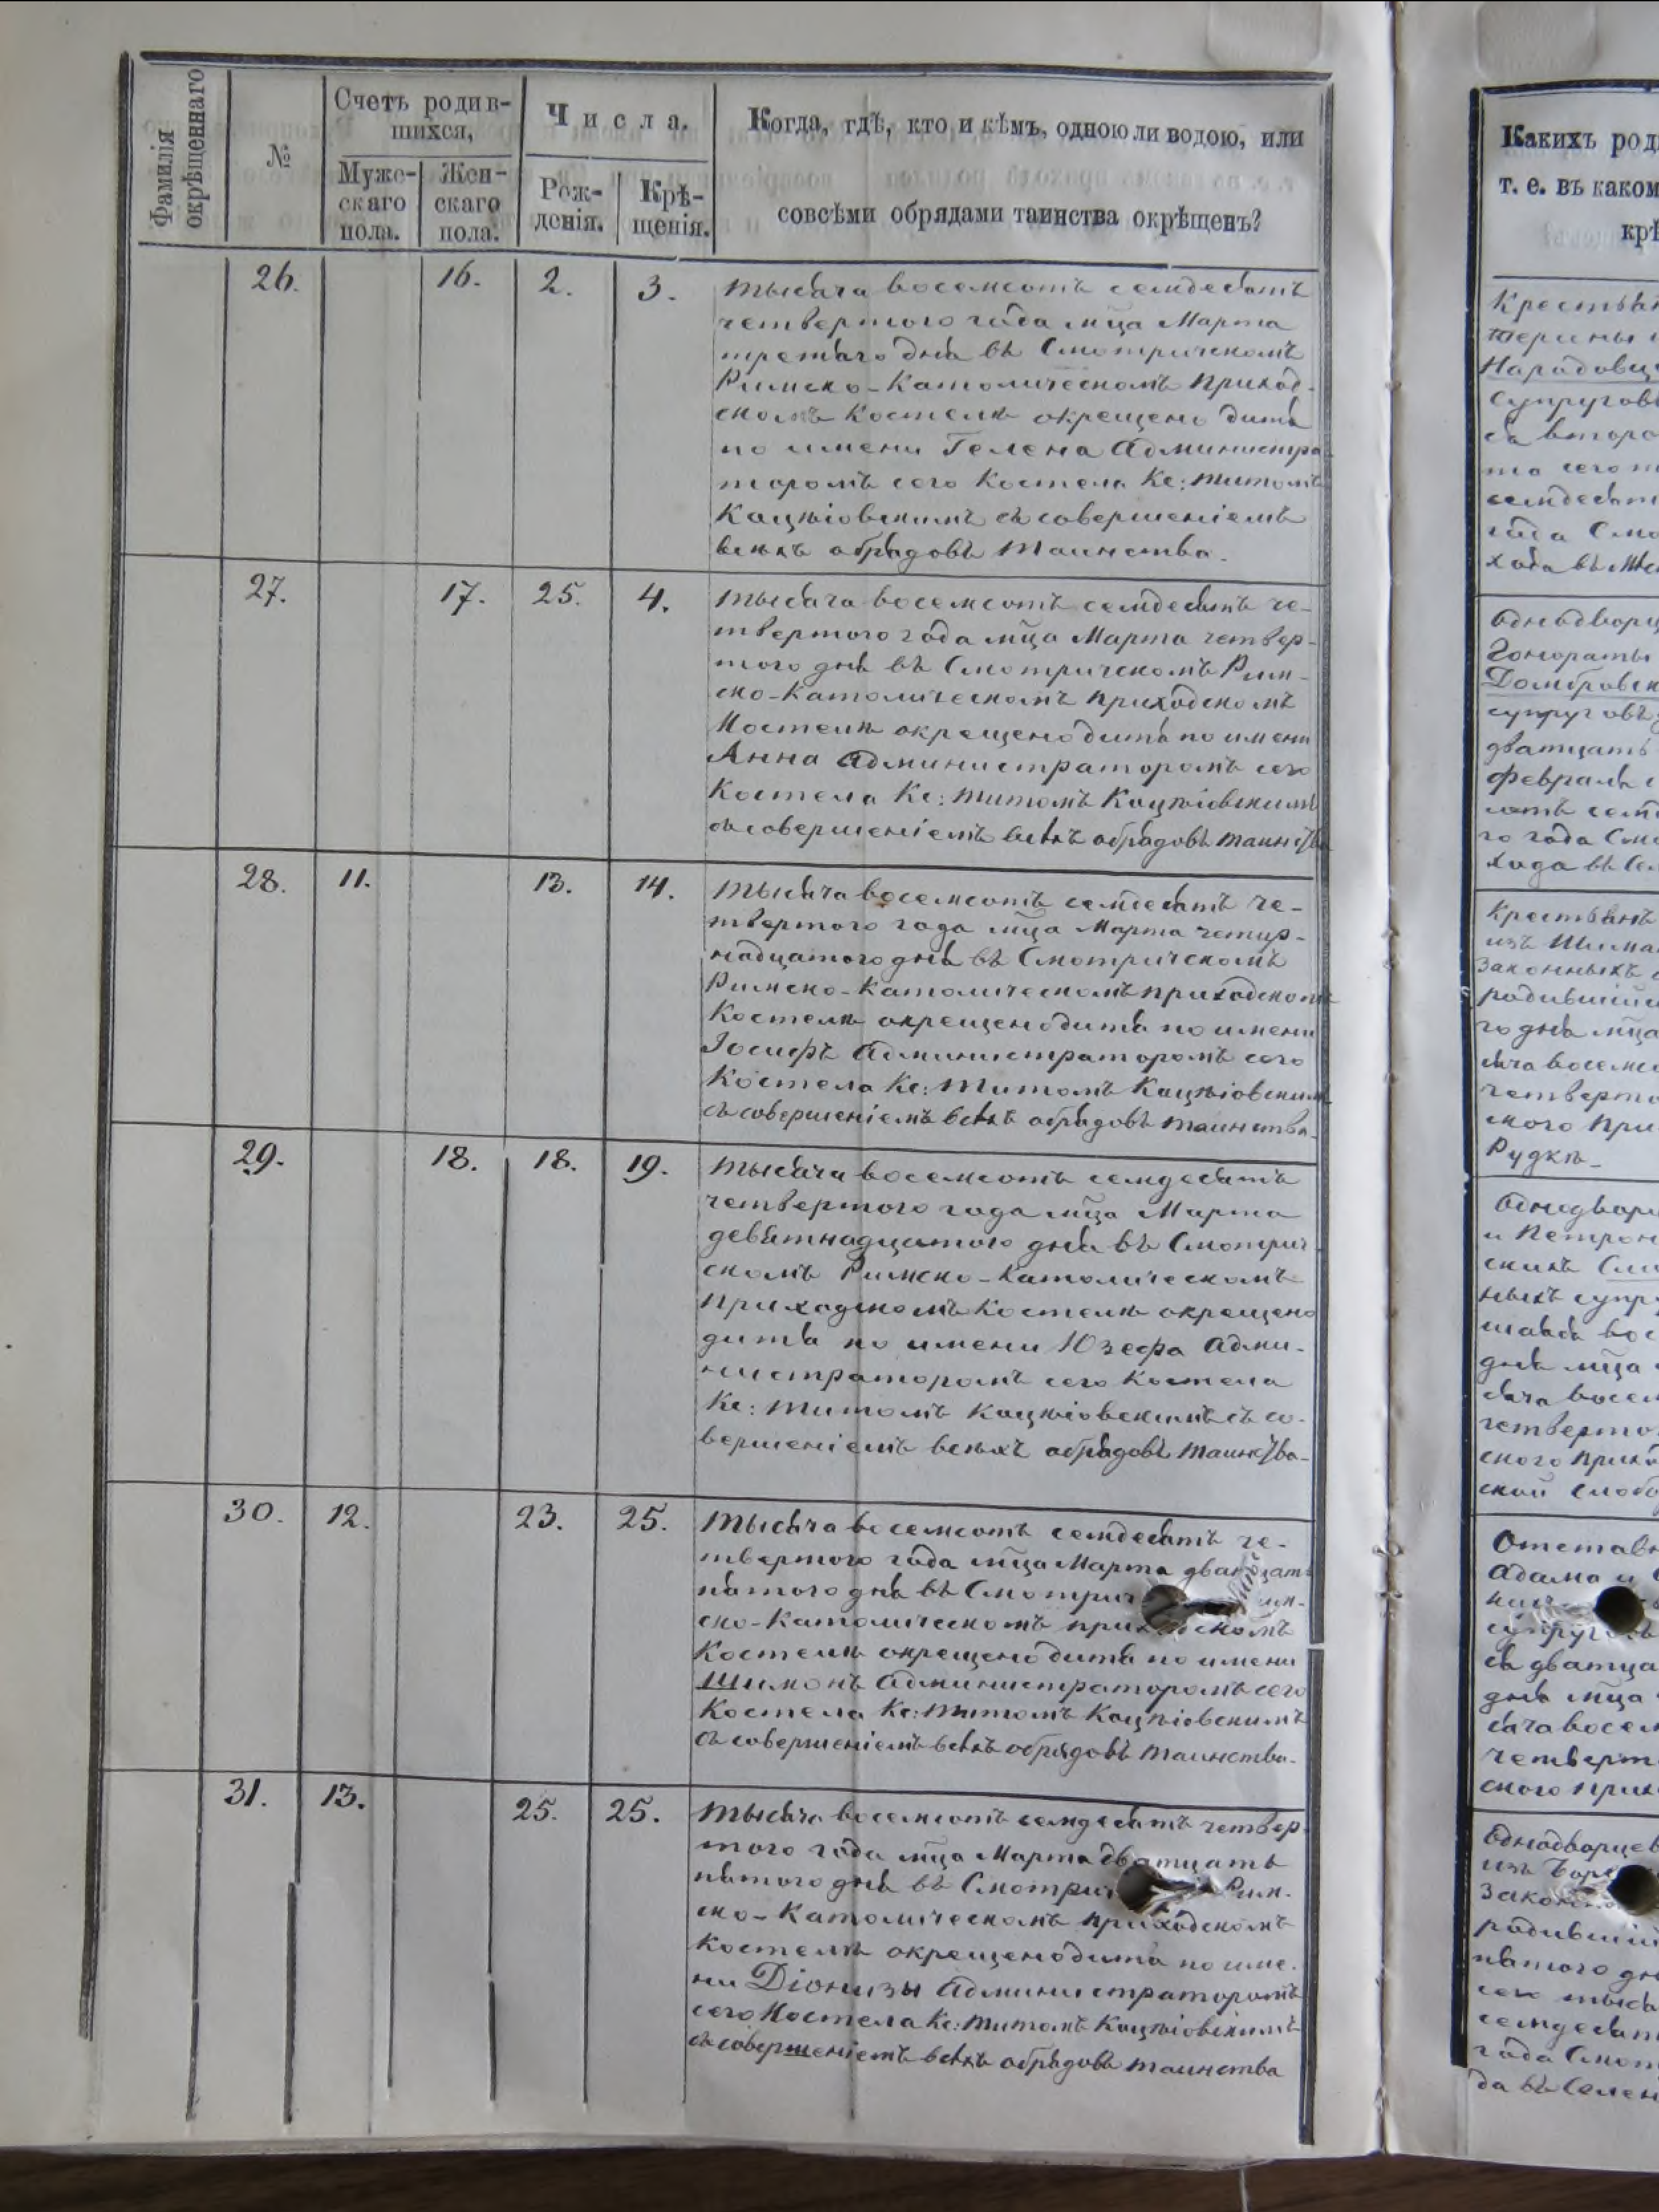 Фамилія окрѣщеннаго
№
Счетъ родившихся,
Мужескаго пола.
Женскаго пола.
Числа.
Рожденія.
Крѣщенія.
Когда, гдѣ, кто и кѣмъ, одною ли водою, или
совсѣми обрядами таинства окрѣщенъ?
26. 16. 2. 3.
тысяча восемсотъ семдесятъ
четвертого года мца Марта
третяго дня въ Смотрическомъ
Римско-Католическомъ приход-
скомъ Костелѣ окрещено дитя
по имени Гелена Администра
торомъ сего Костела Кс: Титомъ
съ совершеніемъ
всѣхъ обрядовъ Таинства.
27. 17. 25. 4.
тысяча восемсотъ семдесятъ че-
твертого года мца Марта четвер-
того дня въ Смотрическомъ Рим-
ско-Католическомъ приходскомъ
Костелѣ окрещено дитя по имени
Анна Администраторомъ сего
Костела Кс: Титомъ
съ совершеніемъ всѣхъ обрядовъ таинства
28. 11. 13. 14.
тысяча восемсотъ семдесятъ че-
твертого года мца Марта четыр-
надцатого дня въ Смотрическомъ
Римско-Католическомъ приходскомъ
Костелѣ окрещено дитя по имени
Іосифъ Администраторомъ сего
Костела Кс: Титомъ
съ совершеніемъ всѣхъ обрядовъ таинства.
29. 18. 18. 19.
тысяча восемсотъ семдесятъ
четвертого года мца Марта
девятнадцатого дня въ Смотрич-
скомъ Римско-Католическомъ
приходскомъ Костелѣ окрещено
дитя по имени Юзефа Адми-
нистраторомъ сего Костела
Кс: Титомъ съ со-
вершеніемъ всѣхъ обрядовъ таинства-
30. 12. 23. 25.
тысяча восемсотъ семдесятъ че-
твертого года мца Марта
пятого дня въ Смотрич
ско-Католическомъ приходскомъ
Костелѣ окрещено дитя по имени
Шимонъ Администраторомъ сего
Костела Кс: Титомъ
съ совершеніемъ всѣхъ обрядовъ таинства.
31. 13. 25. 25.
тысяча восемсотъ семдесятъ четвер-
того года мца Марта двятцать
пятого дня въ Смотрич Рим-
ско-Католическомъ приходскомъ
Костелѣ окрещено дитя по име-
ни Діонизы Администраторомъ
сего Костела Кс: Титомъ
съ совершеніемъ всѣхъ обрядовъ таинства
Какихъ род
т. е. въ каком
крѣ
Крестьян
Народовц
супругов
ся второ
та сего т
семдесят
года Смо
хода въ
Однодворц
Гонораты
Домбровск
супруговъ
дватцать
февраля
го года Смо
хода въ
Крестьянъ
изъ Шима
законныхъ
родившійс
го дня мца
сяча восемс
четверто
ского при
Рудкѣ-
Однодвор
и Петрон
скихъ
ныхъ супр
дня мца
сяча восем
четверто
ского прихо
ской слобо
Отставн
Адама и
супруговъ
ся дватца
дня мца
сяча восем
четверт
ского прих
Однодворцев
изъ
закон
родившій
пятого дн
сего тыся
семдесят
года Смот
да въ Селен